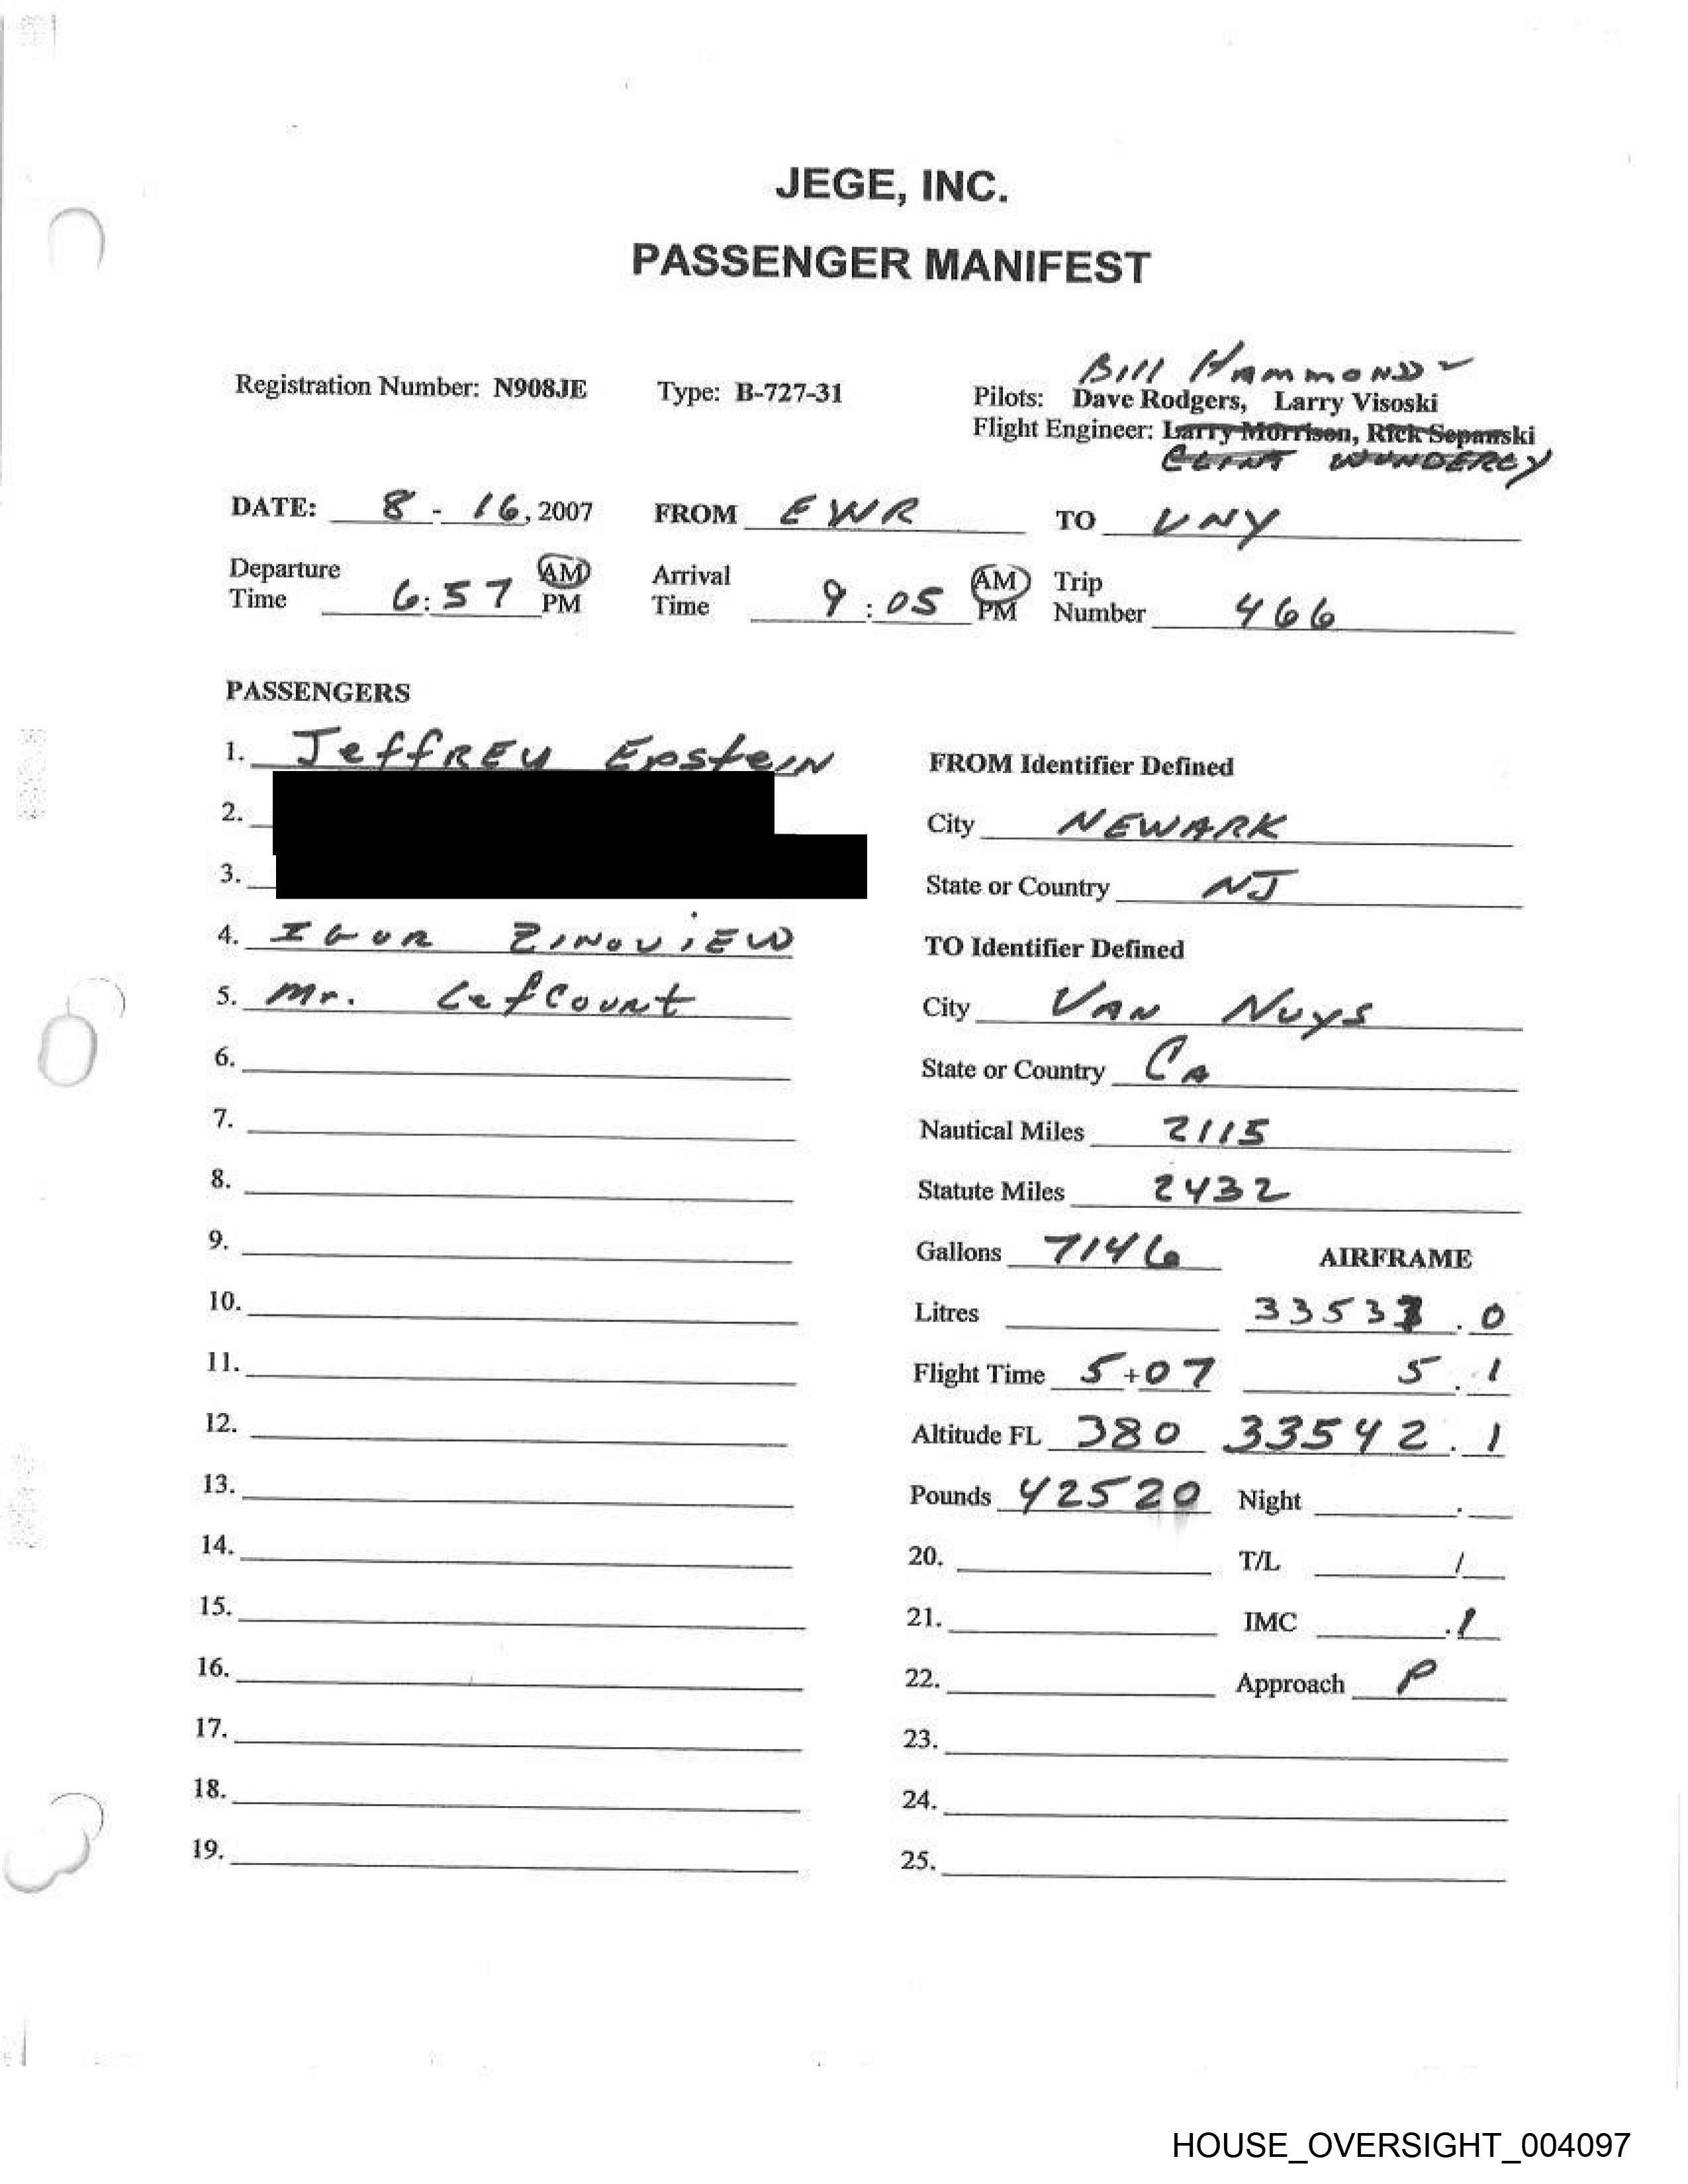 JEGE, INC.
PASSENGER MANIFEST
Bill Hammond
Registration Number: N908JE Type: B-727-31 Pilots: Dave Rodgers, Larry Visoski
Flight Engineer: Larry Morrison, Rick Sepanski
CLINT WUNDERLY
DATE: 8 - 16, 2007 FROM EWR TO VNY
Departure Time 6:57 AM PM Arrival Time 9:05 AM PM Trip Number 466
PASSENGERS
1. JeffREy EpsteIN
FROM Identifier Defined
2.
City NEWARK
3.
State or Country NJ
4. IGOR ZINOViEW
TO Identifier Defined
5. Mr. LefCourt
City VAN NuyS
6.
State or Country CA
7.
Nautical Miles 2115
8.
Statute Miles 2432
9.
Gallons 7146 AIRFRAME
10.
Litres .0
11.
Flight Time 5+07 5.1
12.
Altitude FL 380 33542.1
13.
Pounds 42520 Night .
14.
20. T/L /
15.
21. IMC .1
16.
22. Approach P
17.
23.
18.
24.
19.
25.
HOUSE_OVERSIGHT_004097